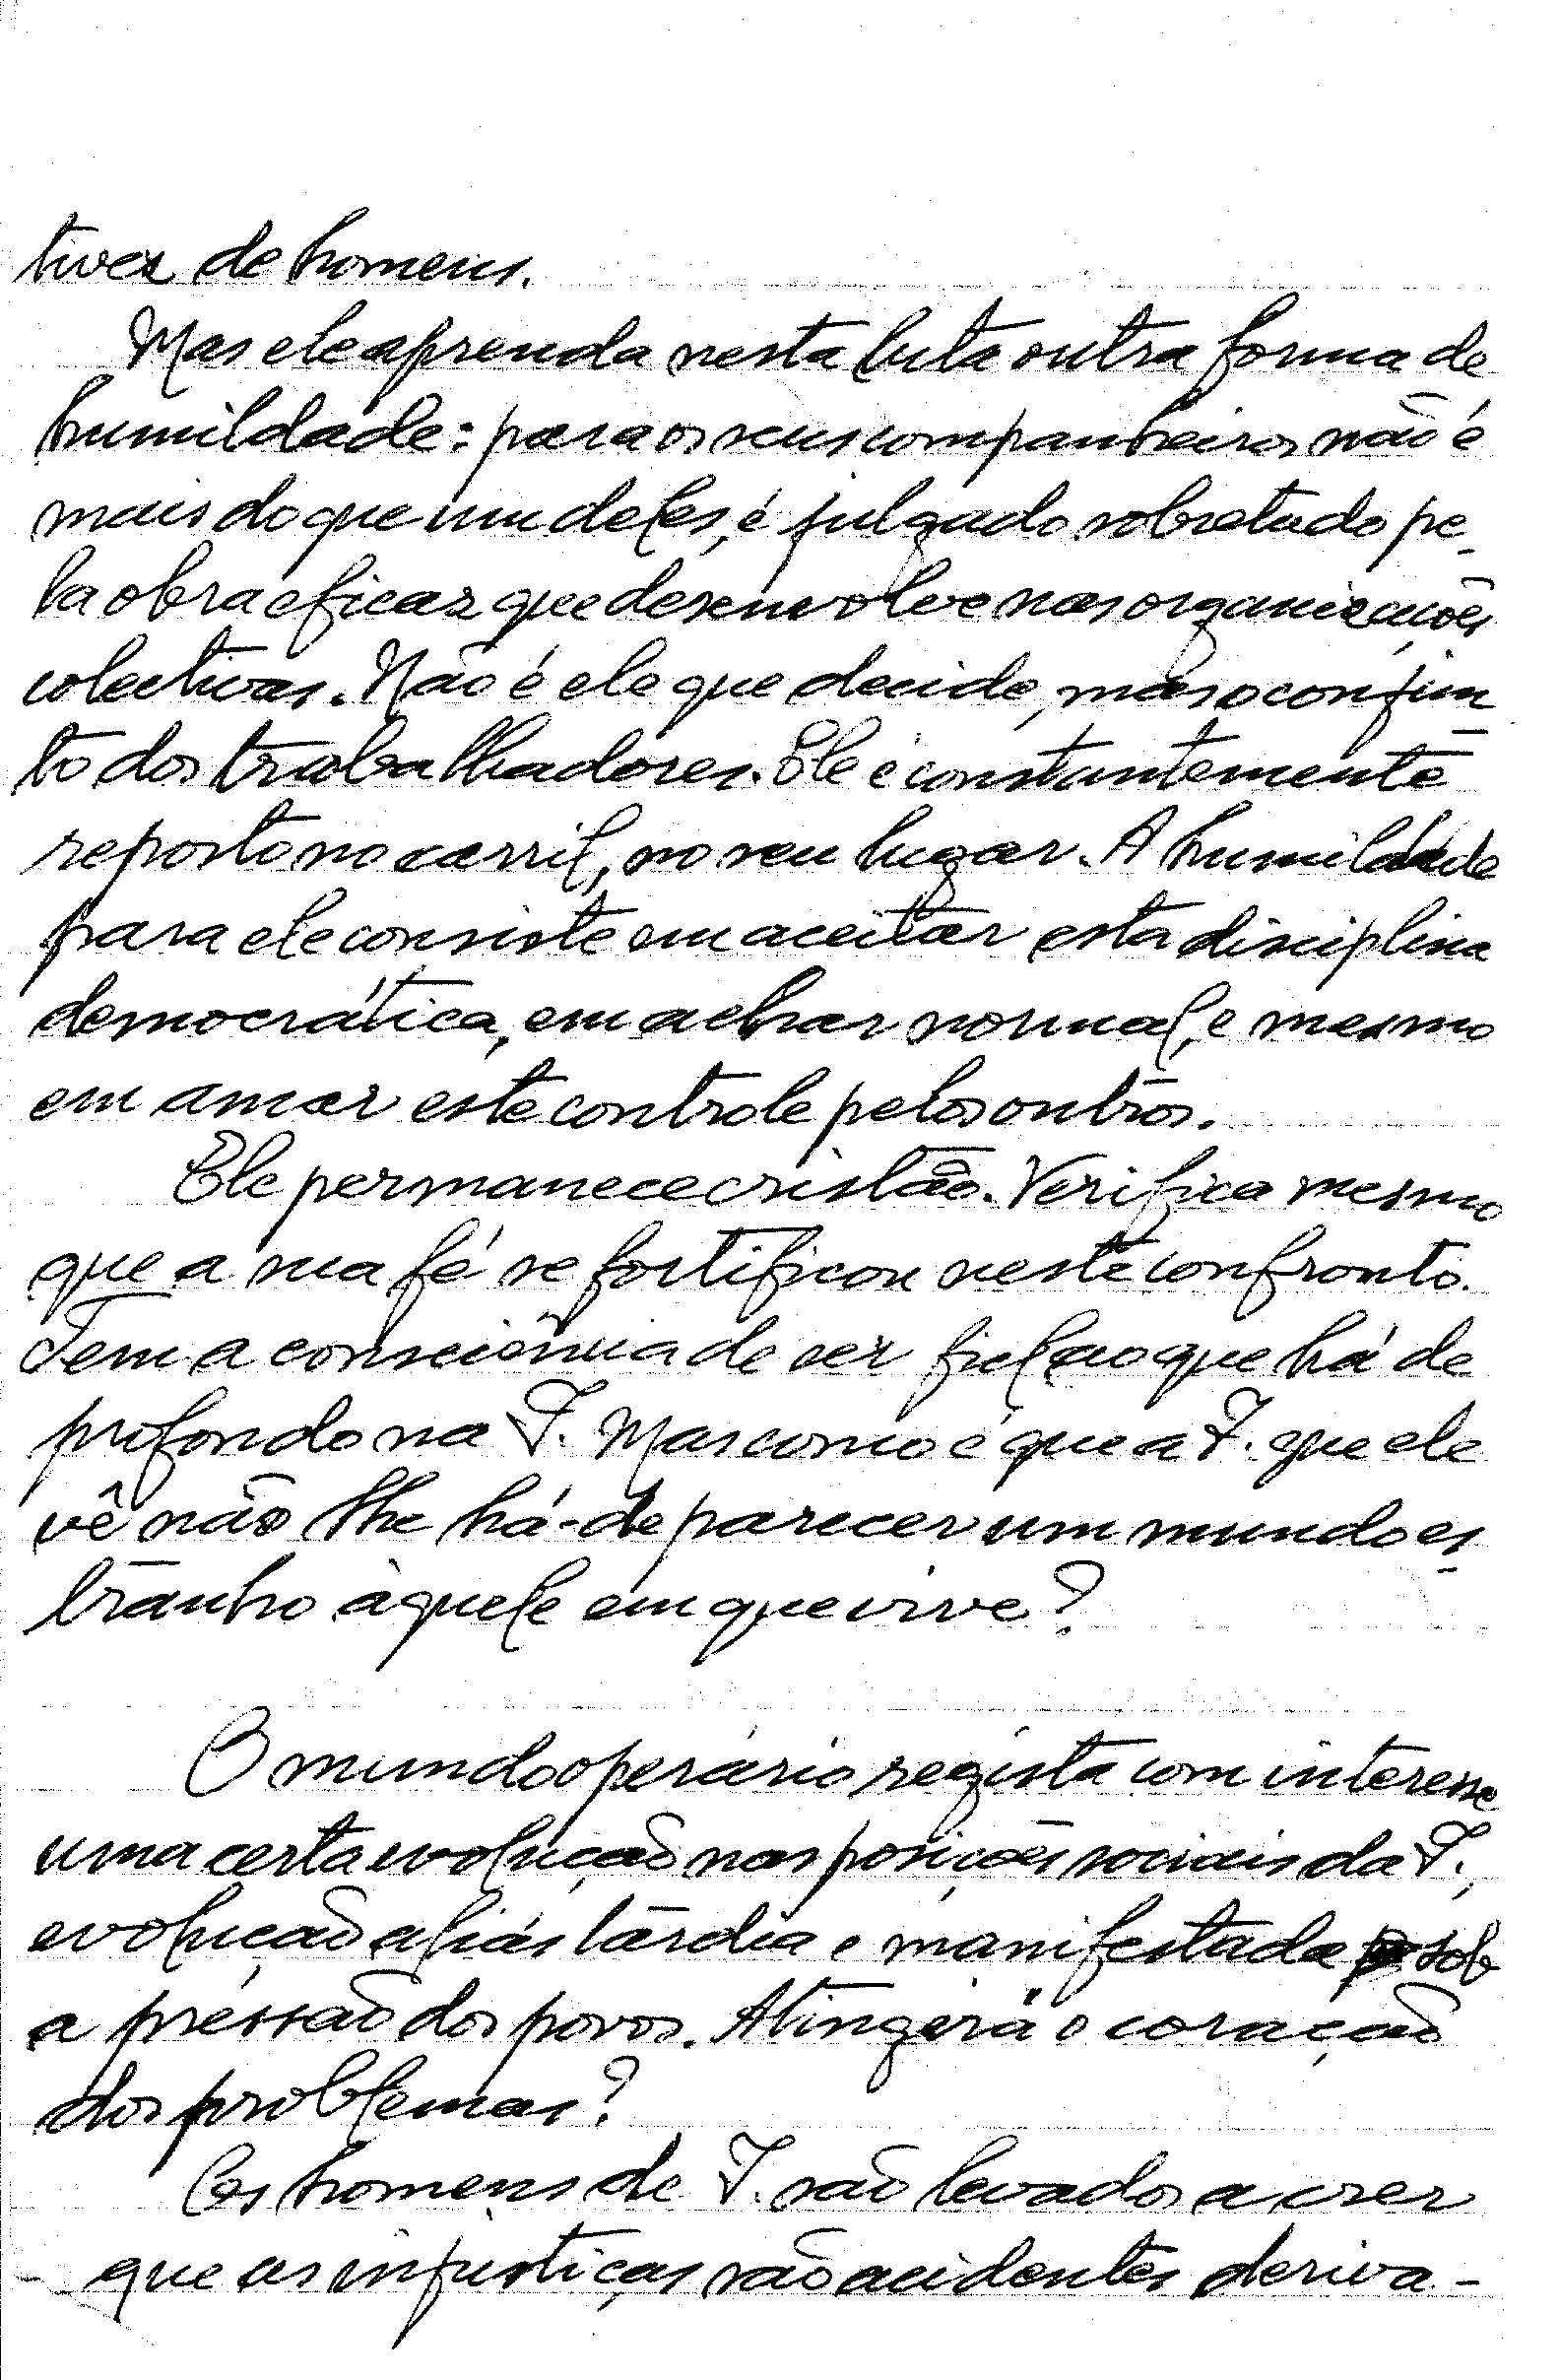 tivos de homens.
Mas ele aprenda nesta luta outra forma de
humildade: para os seus companheiros não é
mais do que um deles, é julgado sobretudo pe-
la obra eficaz que desenvolve nas organizações
colectivas. Não é ele que decide, mas o conjun-
to dos trabalhadores. Ele é constantemente
reposto no carril, no seu lugar. A humildade
para ele consiste em aceitar esta disciplina
democrática, em achar normal, e mesmo
em amar este controle pelos outros.
Ele permanece cristão. Verifica mesmo
que a sua fé se fortificou neste confronto.
Tem a consciência de ser fiel ao que há de
profondo na I. Mas como é que a I. que ele
vê não lhe há-de parecer um mundo es-
tranho àquele em que vive?
O mundo operário regista com interesse
uma certa evolução nas posições sociais da I.,
evolução aliás tardia e manifestada sob
a pressão dos povos. Atingirá o coração
dos problemas?
Os homens de I. são levados a crer
que as injustiças são acidentes deriva-